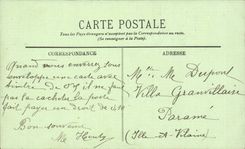 CARTE POSTALE
Tous les Pays étrangers n'acceptent pas la Correspondance au recto.
(Se renseigner à la Poste)
CORRESPONDANCE
ADRESSE
Quand vous envoyez sous
enveloppe une carte avec
timbre de 0,05 il ne faut
pas la cacheter la poste
fait payer un droit de 0,10
Bon souvenir
M. 
Mlle M. Dupont
Villa Granvillaise
Paramé
(Ille-et-Vilaine)